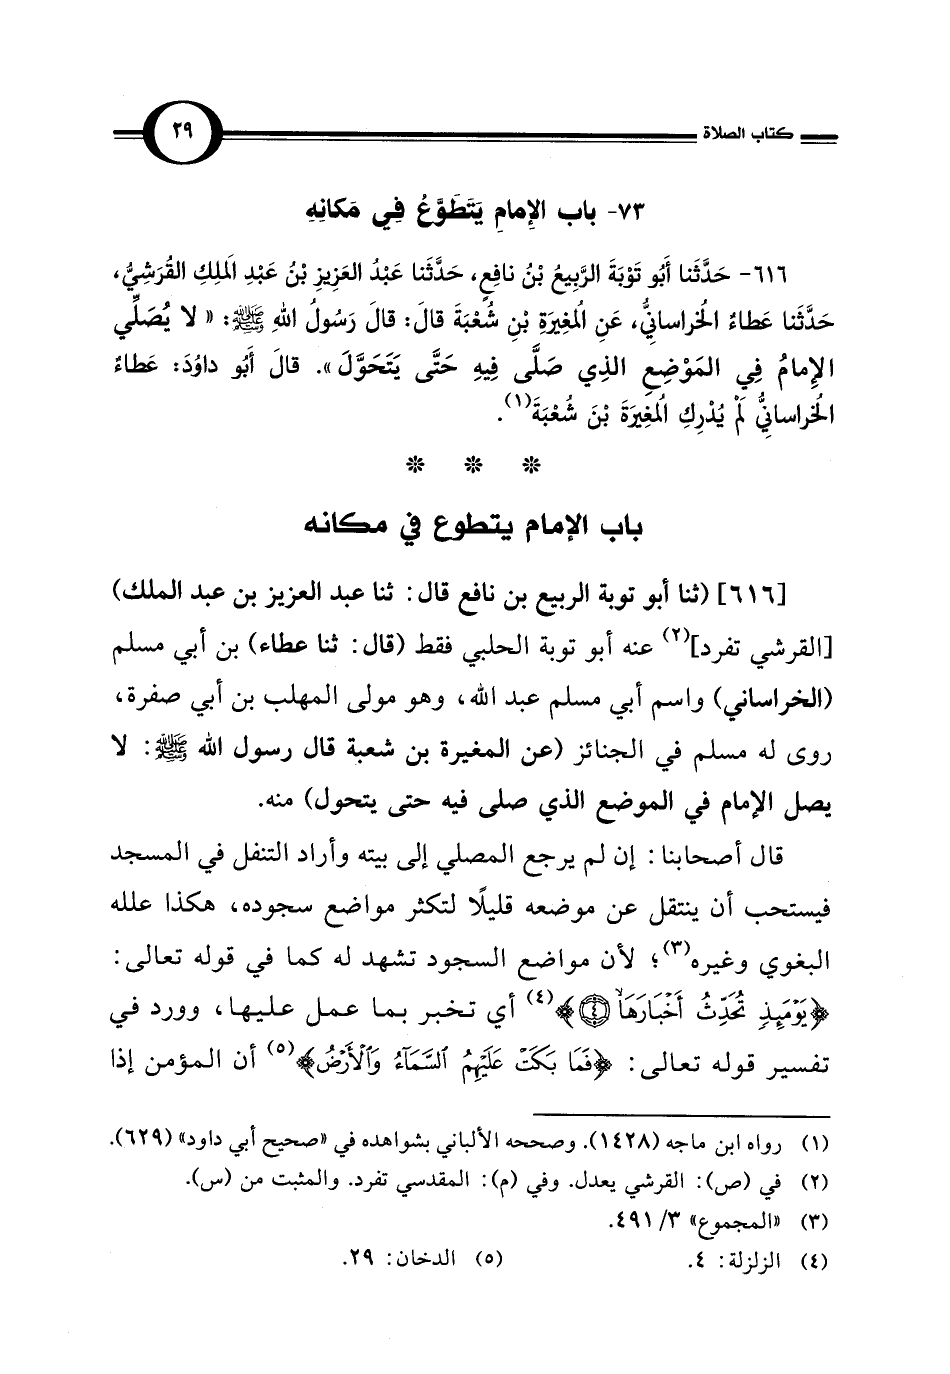 كتاب الصلاة ٢٩
٧٣- باب الإمامِ يَتَطَوَّعُ فِي مَكانِهِ
٦١٦- حَدَّثَنا أَبُو تَوْبَةَ الرَّبِيعُ بْنُ نافِعٍ، حَدَّثَنا عَبْدُ العَزِيزِ بْنُ عَبْدِ الَملِكِ القُرَشِيُّ،
حَدَّثَنا عَطاءٌ الخُراسانِيُّ، عَنِ الُمغِيرَةِ بْنِ شُعْبَةَ قالَ: قالَ رَسُولُ اللهِ ﷺ: « لا يُصَلِّي
الإِمامُ فِي المَوْضِعِ الذِي صَلَّى فِيهِ حَتَّى يَتَحَوَّلَ ». قالَ أَبُو داوُدَ: عَطاءٌ
الخُراسانِيُّ لَمْ يُدْرِكِ الُمغِيرَةَ بْنَ شُعْبَةَ(١).
* * *
باب الإمام يتطوع في مكانه
[٦١٦] (ثنا أبو توبة الربيع بن نافع قال: ثنا عبد العزيز بن عبد الملك)
[القرشي تفرد](٢) عنه أبو توبة الحلبي فقط (قال: ثنا عطاء) بن أبي مسلم
(الخراساني) واسم أبي مسلم عبد الله، وهو مولى المهلب بن أبي صفرة،
روى له مسلم في الجنائز (عن المغيرة بن شعبة قال رسول الله ﷺ: لا
يصل الإمام في الموضع الذي صلى فيه حتى يتحول) منه.
قال أصحابنا: إن لم يرجع المصلي إلى بيته وأراد التنفل في المسجد
فيستحب أن ينتقل عن موضعه قليلًا لتكثر مواضع سجوده، هكذا علله
البغوي وغيره(٣)؛ لأن مواضع السجود تشهد له كما في قوله تعالى:
﴿يَوْمَئِذٍ تُحَدِّثُ أَخْبَارَهَا ٤﴾(٤) أي تخبر بما عمل عليها، وورد في
تفسير قوله تعالى: ﴿فَمَا بَكَتْ عَلَيْهِمُ السَّمَاءُ وَالْأَرْضُ﴾(٥) أن المؤمن إذا
(١) رواه ابن ماجه (١٤٢٨). وصححه الألباني بشواهده في «صحيح أبي داود» (٦٢٩).
(٢) في (ص): القرشي يعدل. وفي (م): المقدسي تفرد. والمثبت من (س).
(٣) «المجموع» ٣/ ٤٩١.
(٤) الزلزلة: ٤. (٥) الدخان: ٢٩.